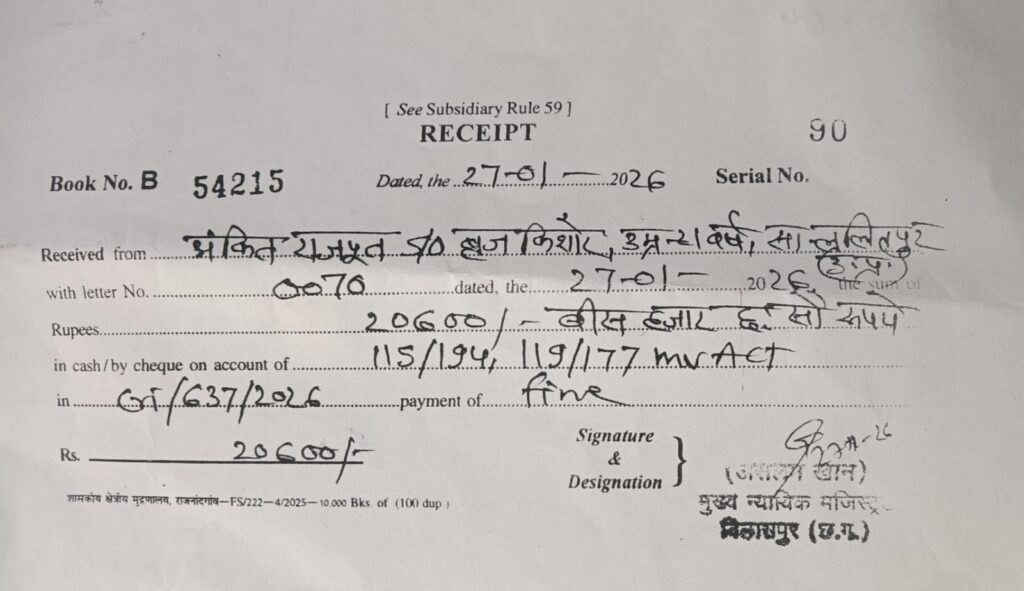 [ See Subsidiary Rule 59 ]
RECEIPT
90
Book No. B 54215 Dated, the 27-01- 2026 Serial No.
Received from अंकित राजपूत S/o ब्रज किशोर, उम्र वर्ष, सा ललितपुर
(उ.प्र.)
with letter No. 0070 dated, the 27-01- 2026 the sum of
Rupees 20600/- बीस हजार छः सौ रूपये
in cash/by cheque on account of 115/194, 119/177 mv ACT
in Cri/637/2026 payment of fine
Rs. 20600/- Signature & Designation }
(असलम खान)
मुख्य न्यायिक मजिस्ट्र
बिलासपुर (छ.ग.)
शासकीय क्षेत्रीय मुद्रणालय, राजनांदगांव—FS/222—4/2025—10,000 Bks. of (100 dup )